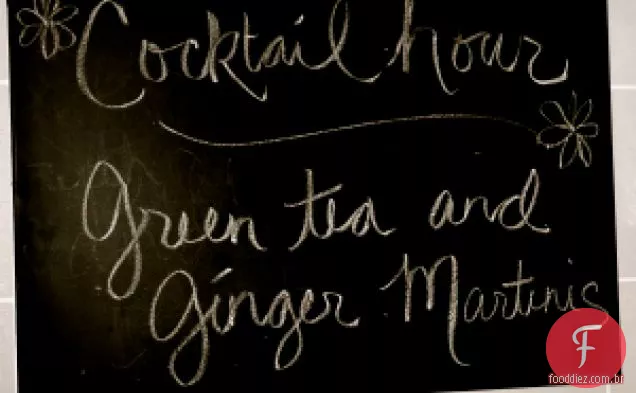 Cocktail hour
Green tea and
Ginger Martinis
F
fooddiez.com.br